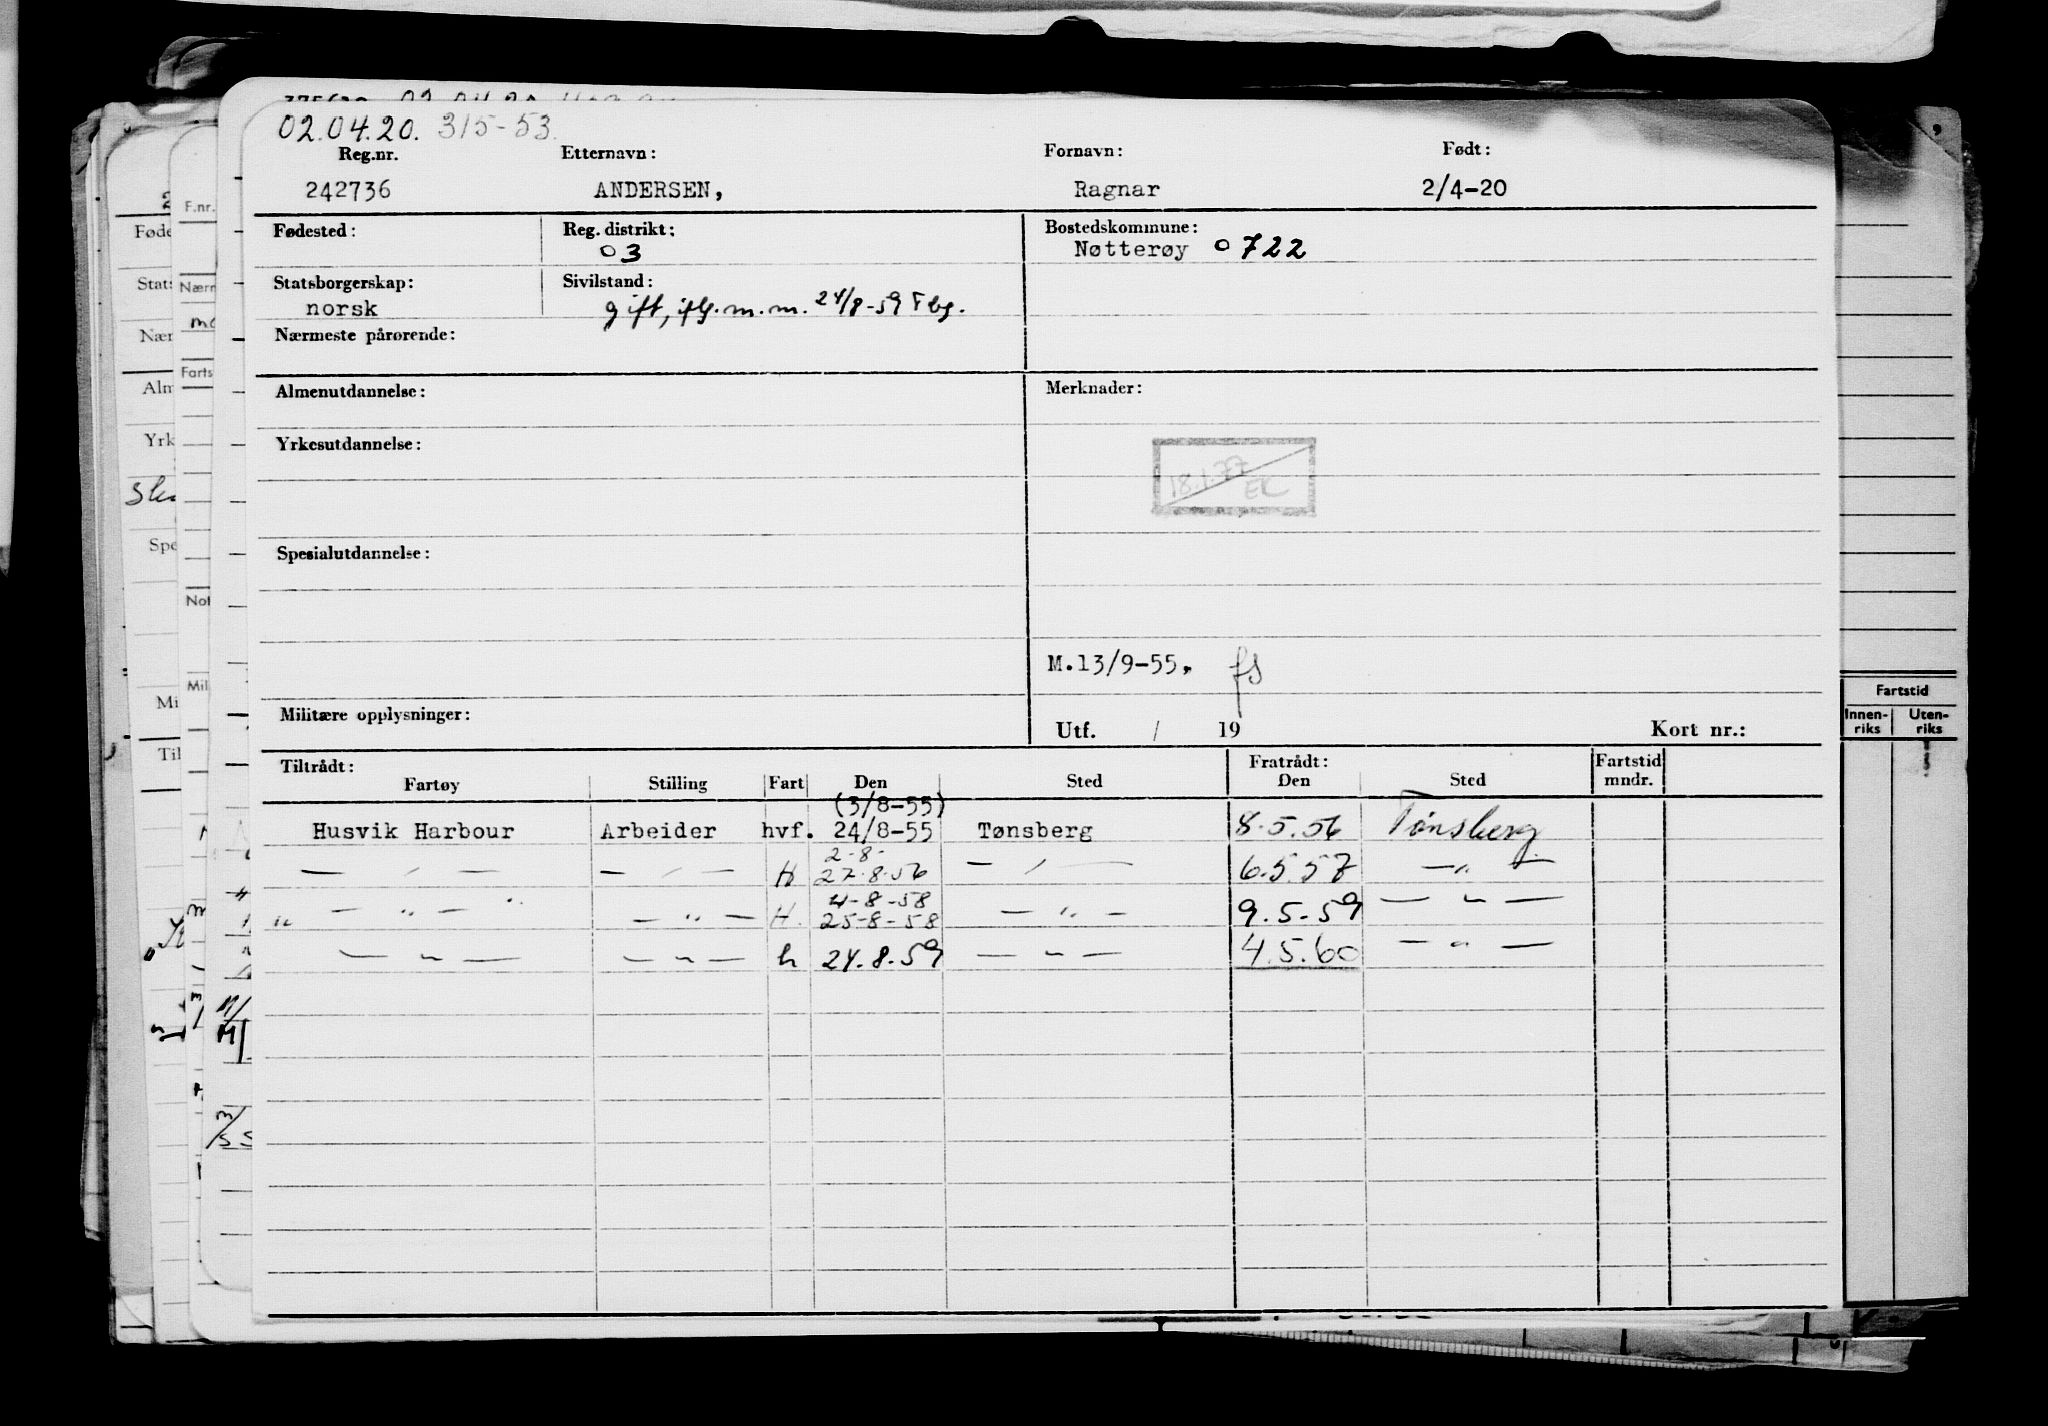 02.04.20. 315-53.
Reg.nr. Etternavn: Fornavn: Født:
242736 ANDERSEN, Ragnar 2/4-20
Fødested: Reg. distrikt: Bostedskommune:
03 Nøtterøy 0722
Statsborgerskap: Sivilstand:
norsk gift, iflg. m.m. 24/8-59 Tbg.
Nærmeste pårørende:
Almenutdannelse: Merknader:
Yrkesutdannelse:
18.1.77 EK
Spesialutdannelse:
M.13/9-55. fs
Militære opplysninger: Utf. / 19 Kort nr.:
Tiltrådt: Fratrådt: Fartstid
Fartøy Stilling Fart Den Sted Den Sted mndr.
(3/8-55)
Husvik Harbour Arbeider hvf. 24/8-55 Tønsberg 8.5.56 Tønsberg
2-8-
— ʼ — — ʼ — H 27.8.56 — ʼ — 6.5.57 — " —
4-8-58
" — " — " — " — H. 25-8-58 — " — 9.5.59 — " —
— " — — " — h 24.8.59 — " — 4.5.60 — " —
Fartstid
Innen- Uten-
riks riks
F.nr.
Føde
Stats
Nærm
Nær
Farts
Alm
Yrk
Spe
Not
Mil
Mi
Til